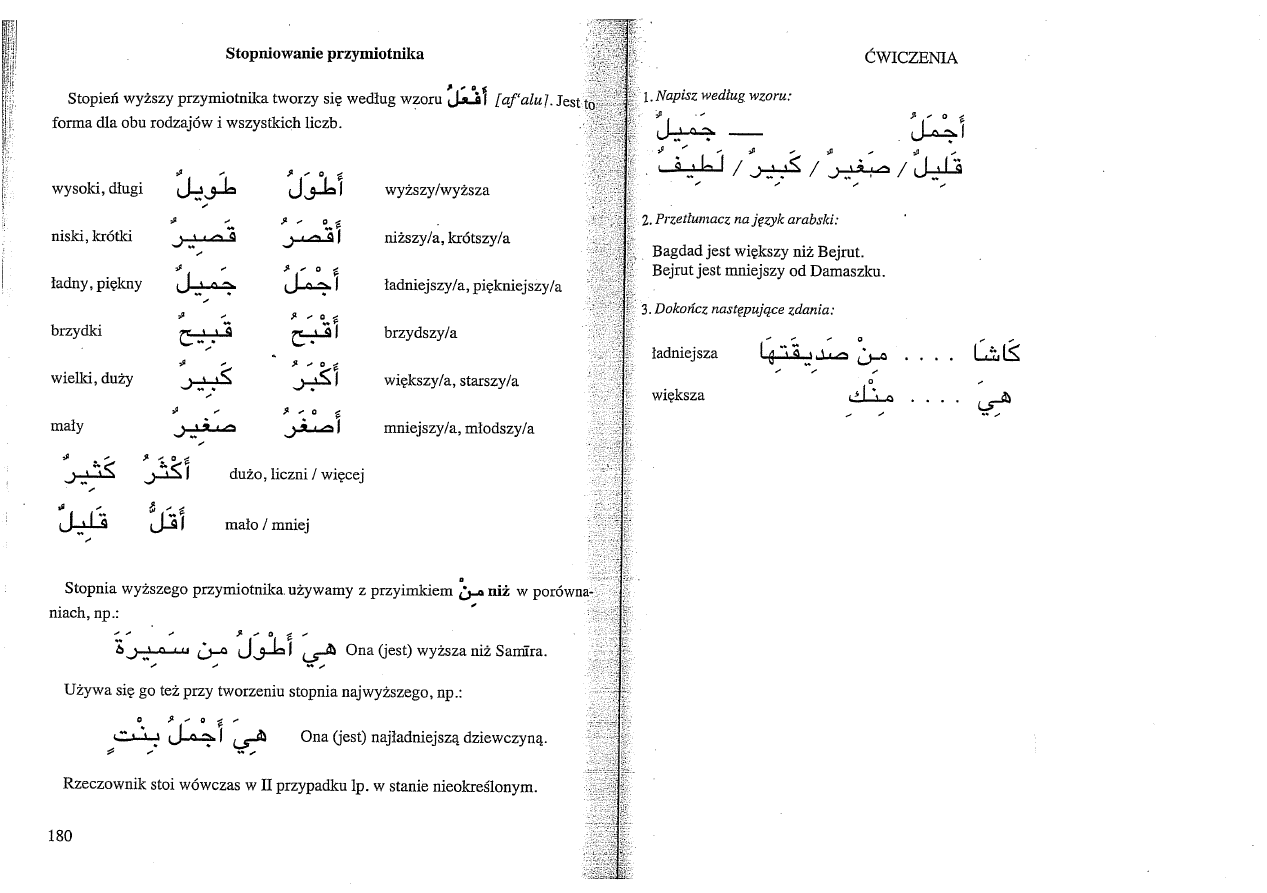 Stopniowanie przymiotnika
Stopień wyższy przymiotnika tworzy się według wzoru أَفْعَلُ [af‘alu]. Jest to
forma dla obu rodzajów i wszystkich liczb.
wysoki, długi طَويِلٌ أَطْوَلُ wyższy/wyższa
niski, krótki قَصيِرٌ أَقْصَرُ niższy/a, krótszy/a
ładny, piękny جَميِلٌ أَجْمَلُ ładniejszy/a, piękniejszy/a
brzydki قَبيِحٌ أَقْبَحُ brzydszy/a
wielki, duży كَبيِرٌ أَكْبَرُ większy/a, starszy/a
mały صَغيِرٌ أَصْغَرُ mniejszy/a, młodszy/a
كَثيِرٌ أَكْثَرُ dużo, liczni / więcej
قَليِلٌ أَقَلُّ mało / mniej
Stopnia wyższego przymiotnika używamy z przyimkiem مِنْ niż w porówna-
niach, np.:
هِيَ أَطْوَلُ مِن سَميِرَةَ Ona (jest) wyższa niż Samīra.
Używa się go też przy tworzeniu stopnia najwyższego, np.:
هِيَ أَجْمَلُ بِنْتٍ Ona (jest) najładniejszą dziewczyną.
Rzeczownik stoi wówczas w II przypadku lp. w stanie nieokreślonym.
180
ĆWICZENIA
1. Napisz według wzoru:
جَميِلٌ — أَجْمَلُ
قَليِلٌ / صَغيِرٌ / كَبيِرٌ / لَطيِفٌ
2. Przetłumacz na język arabski:
Bagdad jest większy niż Bejrut.
Bejrut jest mniejszy od Damaszku.
3. Dokończ następujące zdania:
ładniejsza كَاشَا . . . . مِنْ صَديِقَتِهَا
większa هِيَ . . . . مِنْكِ